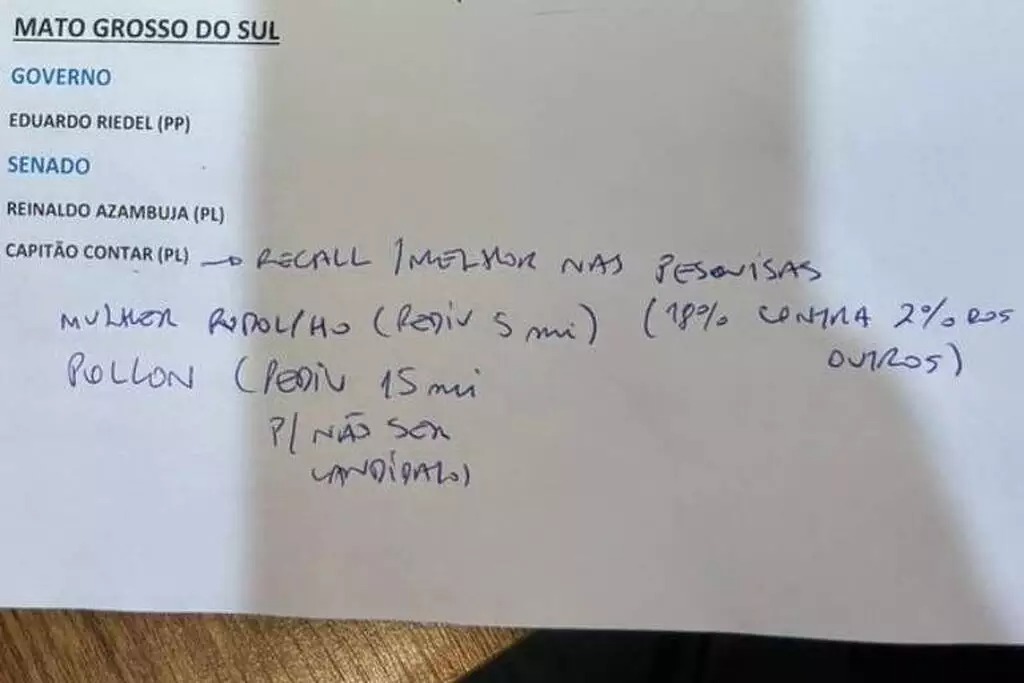 MATO GROSSO DO SUL
GOVERNO
EDUARDO RIEDEL (PP)
SENADO
REINALDO AZAMBUJA (PL)
CAPITÃO CONTAR (PL) → RECALL / MELHOR NAS PESQUISAS
MULHER RODOLFHO (PEDIU 5 mi) (18% CONTRA 2% DOS
OUTROS)
POLLON (PEDIU 15 mi
P/ NÃO SER
CANDIDATO)